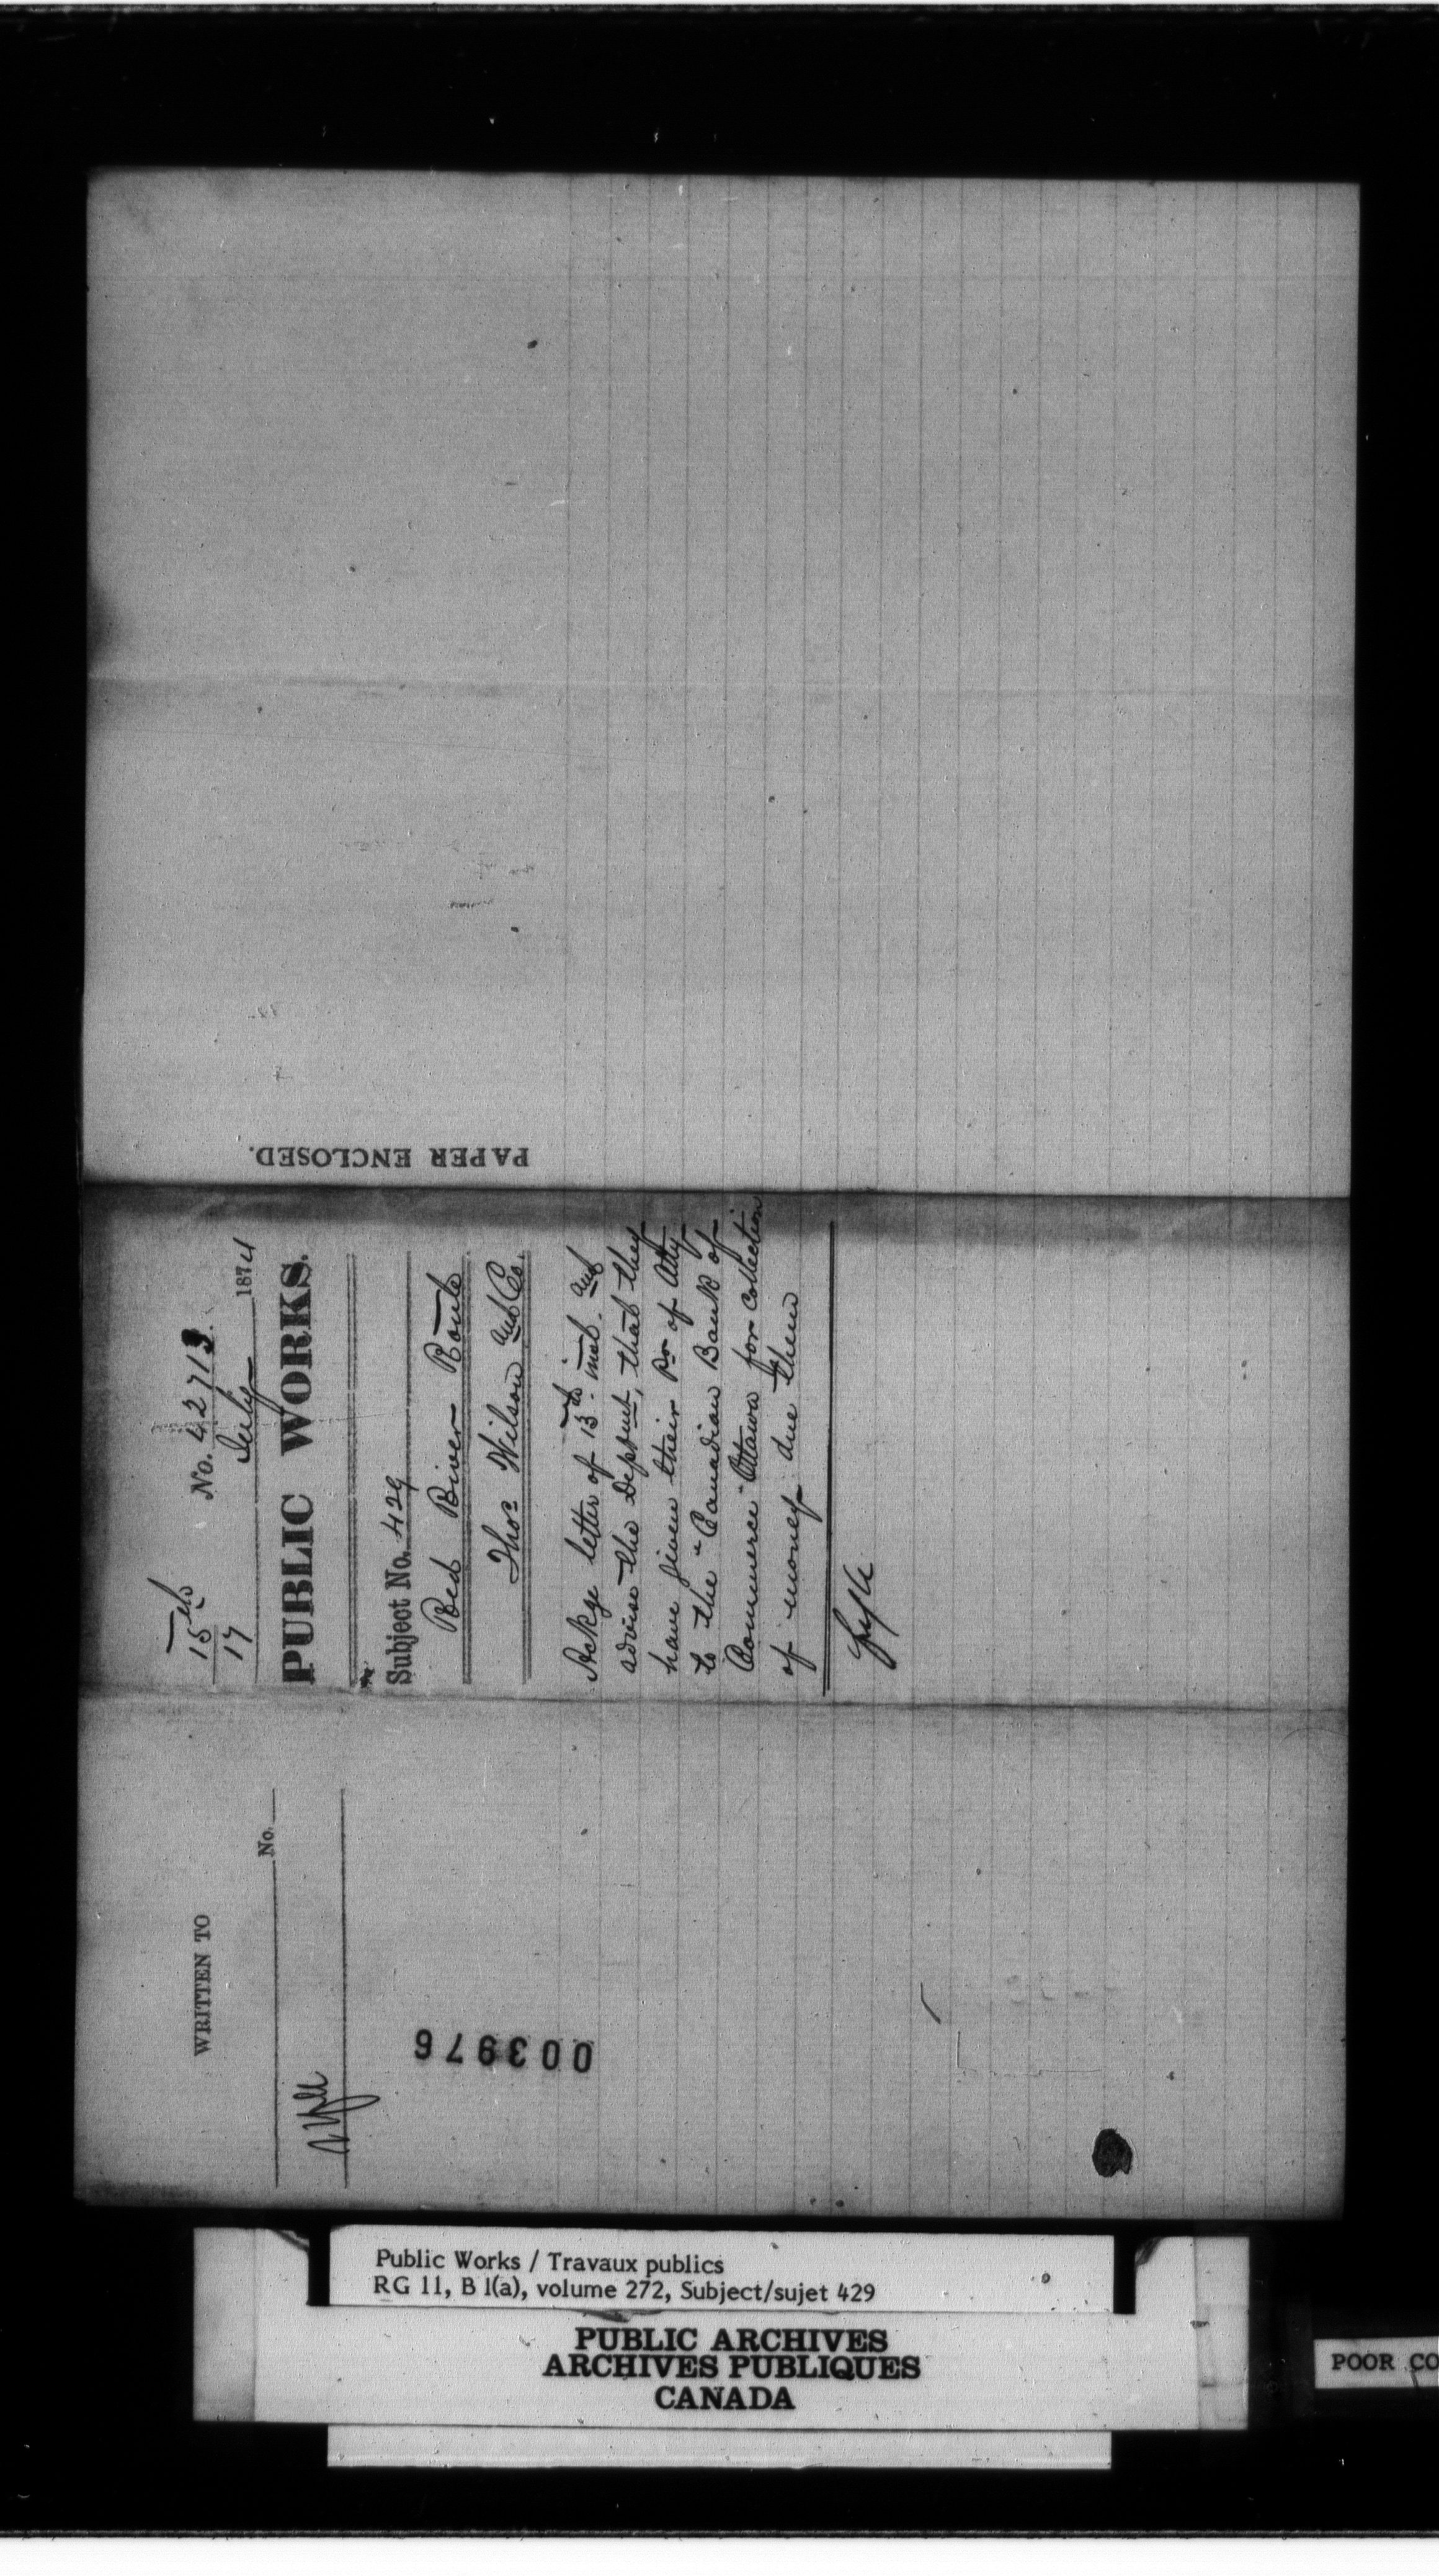 PAPER ENCLOSED.
15th
17
No. 42713.
July 1874
PUBLIC WORKS.
Subject No. 429
Red River Route
Thos Wilson and Co.
Ackge letter of 13th inst. and
advise the Deptmt, that they
have given their Pr of Atty
to the "Canadian Bank of
Commerce" Ottawa for collection
of money due them
WRITTEN TO
No.
003976
Public Works / Travaux publics
RG 11, B 1(a), volume 272, Subject/sujet 429
PUBLIC ARCHIVES
ARCHIVES PUBLIQUES
CANADA
POOR CO